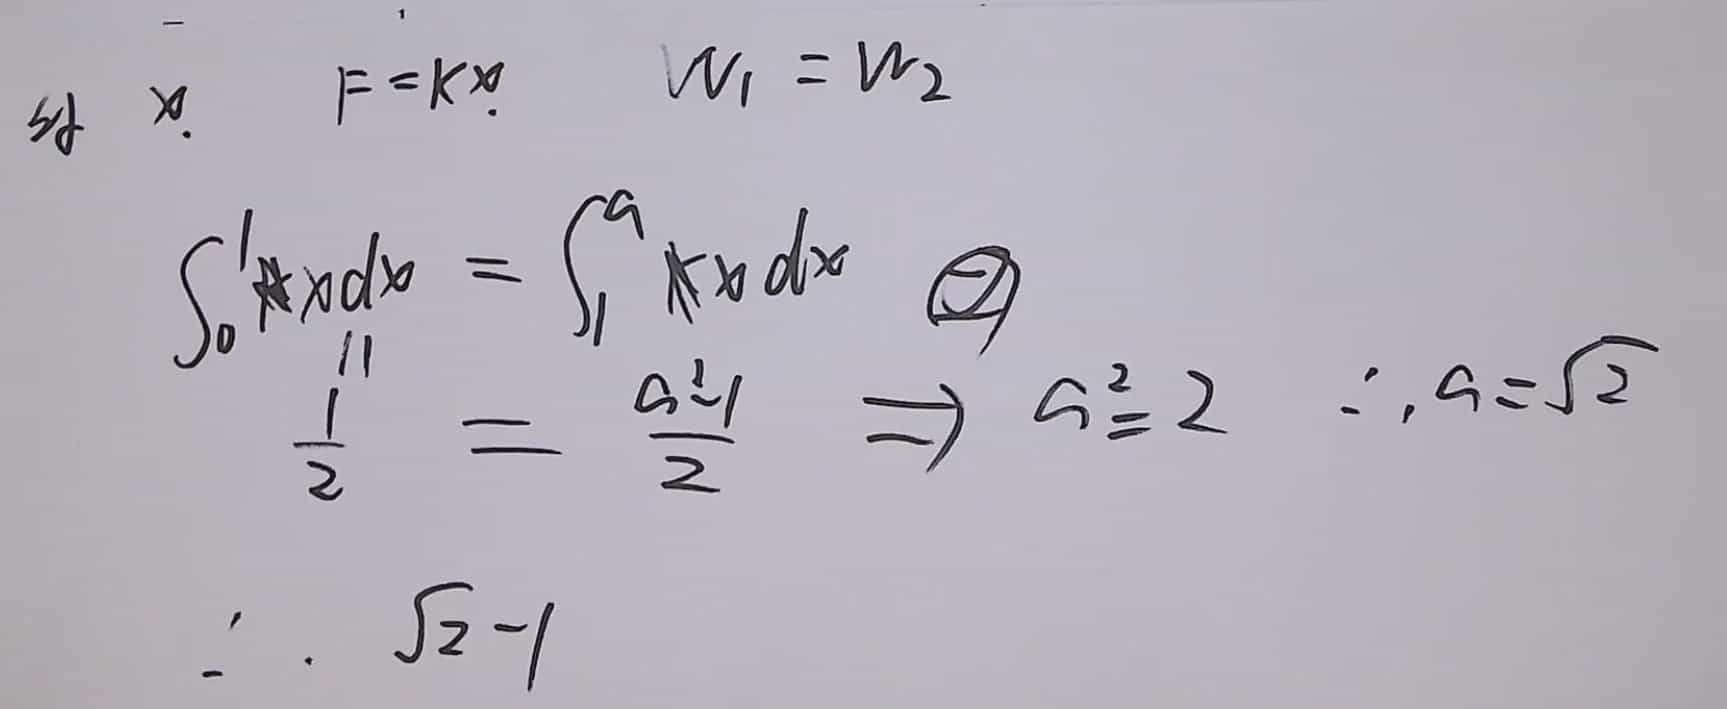 x. F = kx. W₁ = W₂
∫₀¹ kxdx = ∫₁ᵃ kxdx
||
1/2 = (a²-1)/2 ⇒ a² = 2 ∴, a = √2
∴ √2 - 1